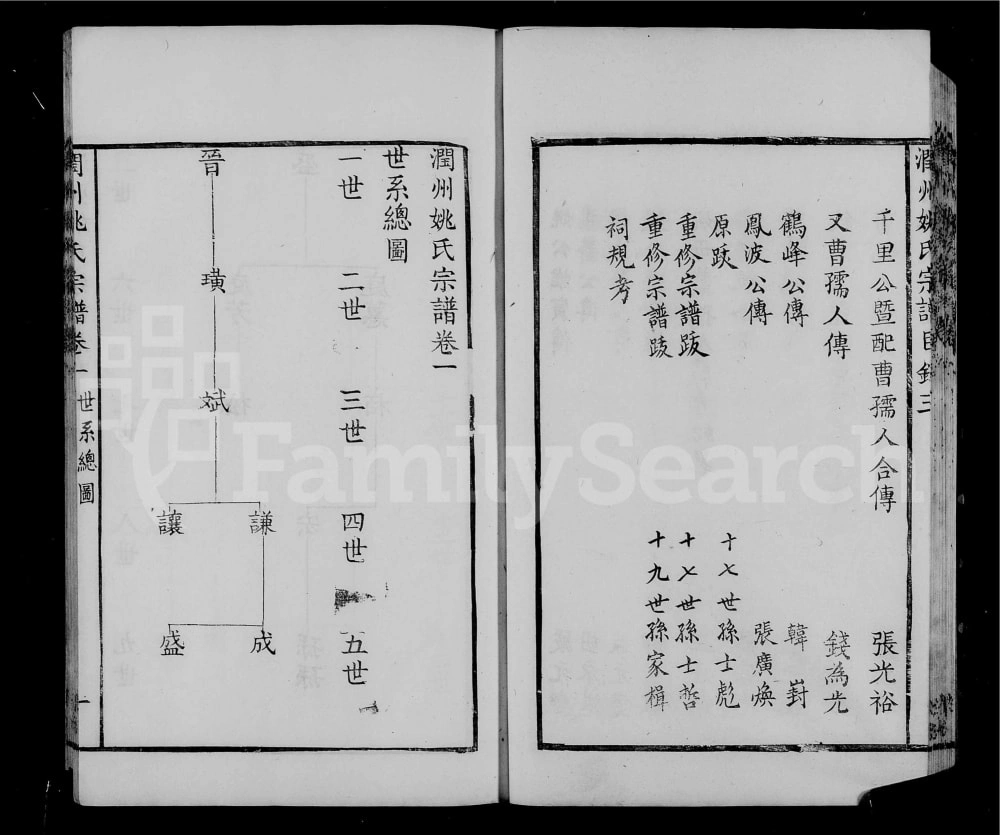 潤州姚氏宗譜目錄 三
千里公暨配曹孺人合傳 張光裕
又曹孺人傳 錢為光
鶴峰公傳 韓崶
鳳波公傳 張廣煥
原跋 十七世孫士彪
重修宗譜跋 十七世孫士哲
重修宗譜跋 十九世孫家楫
祠規考
潤州姚氏宗譜卷一
世系總圖
一世 二世 三世 四世 五世
晉 璜 斌 謙 成
讓 盛
潤州姚氏宗譜卷一 世系總圖 一
FamilySearch